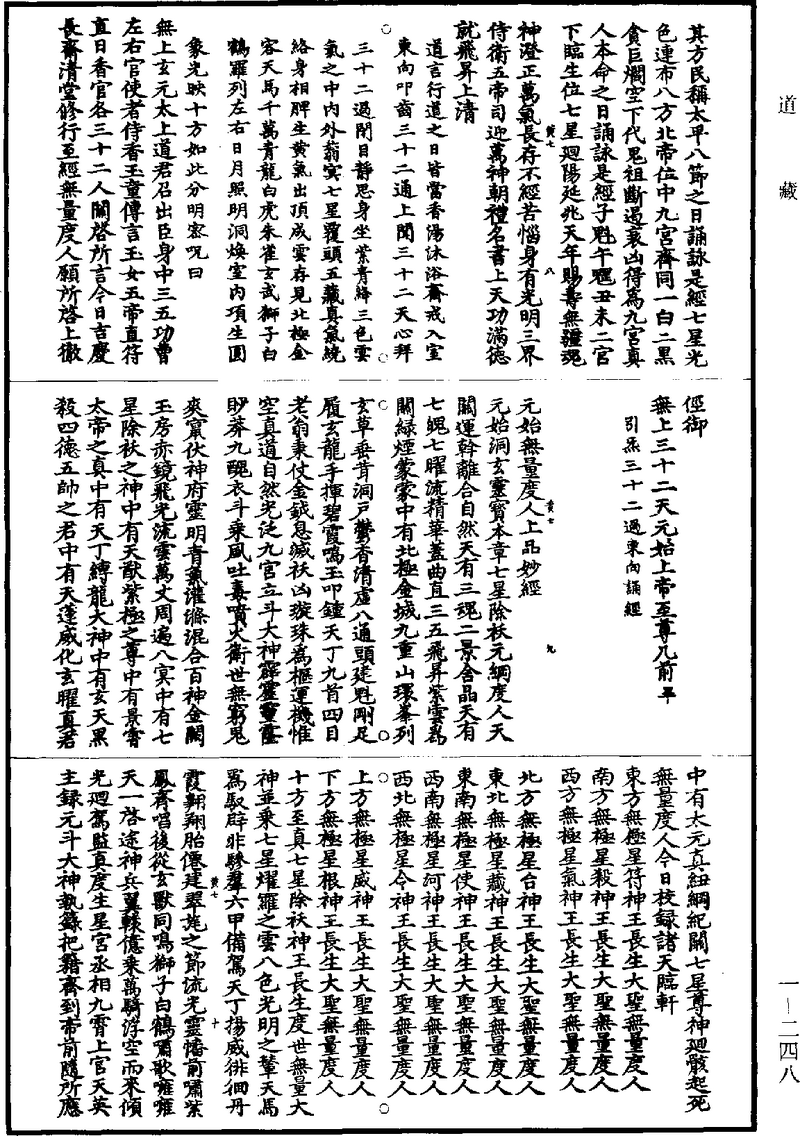 道藏
其方民稱太平八節之日誦詠是經七星光
色連布八方北帝位中九宮齊同一白二黑
貪巨爛空下代鬼祖斷遏衰凶得為九宮真
人本命之日誦詠是經子魁午魓丑未二宮
下臨生位七星迴陽延兆天年賜壽無疆魂
黄七 八
神澄正萬氣長存不經苦惱身有光明三界
侍衛五帝司迎萬神朝禮名書上天功滿德
就飛昇上清
道言行道之日皆當香湯沐浴齋戒入室
東向叩齒三十二通上聞三十二天心拜
三十二過閉目靜思身坐紫青絳三色雲
氣之中內外蓊雲七星覆頭五藏真氣繞
絡身相脾生黄氣出頂成雲存見北極金
容天馬千萬青龍白虎朱雀玄武獅子白
鶴羅列左右日月照明洞煥室內項生圓
象光映十方如此分明密呪曰
無上玄元太上道君召出臣身中三五功曹
左右官使者侍香玉童傳言玉女五帝直符
直日香官各三十二人關啓所言今日吉慶
長齋清堂修行至經無量度人願所啓上徹
徑御
無上三十二天元始上帝至尊几前 畢
引炁三十二過東向誦經
黄七 九
元始無量度人上品妙經
元始洞玄靈寶本章七星除祅元綱度人天
關運斡離合自然天有三魂二景含晶天有
七魄七曜流精華蓋曲直三五飛昇紫雲為
關綠煙蒙蒙中有北極金城九重山環峯列
玄草垂茸洞戶鬱香清虛八通頭建魁剛足
履玄龍手揮碧霞鳴玉叩鐘天丁九首四目
老翁秉仗金鉞息滅祅凶璇珠為樞運機惟
空真道自然光泛九宮立斗大神霹靂靈𩆜
眇莽九醜衣斗乘風吐毒噴火衛世無窮鬼
爽竄伏神府靈明青氣灌滌混合百神金闕
玉房赤鏡飛光流雲萬丈周遍八冥中有七
星除祅之神中有天猷紫極之尊中有景霄
太帝之真中有天丁縛龍大神中有玄天黑
殺四德五帥之君中有天蓬威化玄曜真君
中有太元真紐綱紀關七星尊神廻骸起死
無量度人今日校録諸天臨軒
東方無極星符神王長生大聖無量度人
南方無極星殺神王長生大聖無量度人
西方無極星氣神王長生大聖無量度人
北方無極星合神王長生大聖無量度人
東北無極星藏神王長生大聖無量度人
東南無極星使神王長生大聖無量度人
西南無極星河神王長生大聖無量度人
西北無極星令神王長生大聖無量度人
上方無極星威神王長生大聖無量度人
下方無極星根神王長生大聖無量度人
十方至真七星除祅神王長生度世無量大
神並乘七星燿羅之雲八色光明之輦天馬
為馭辟非驂羣六甲備駕天丁揚威徘徊丹
黄七 十
霞翔翔胎僊建翠旄之節流光靈幡前嘯紫
鳳齊唱後從玄獸同鳴獅子白鶴嘯歌嗈嗈
天一啓途神兵翼轅億乘萬騎浮空而來傾
光迴駕監真度生星宮丞相九霄上官天英
主録元斗大神執籙把籍齊到帝前隨所應
一—二四八